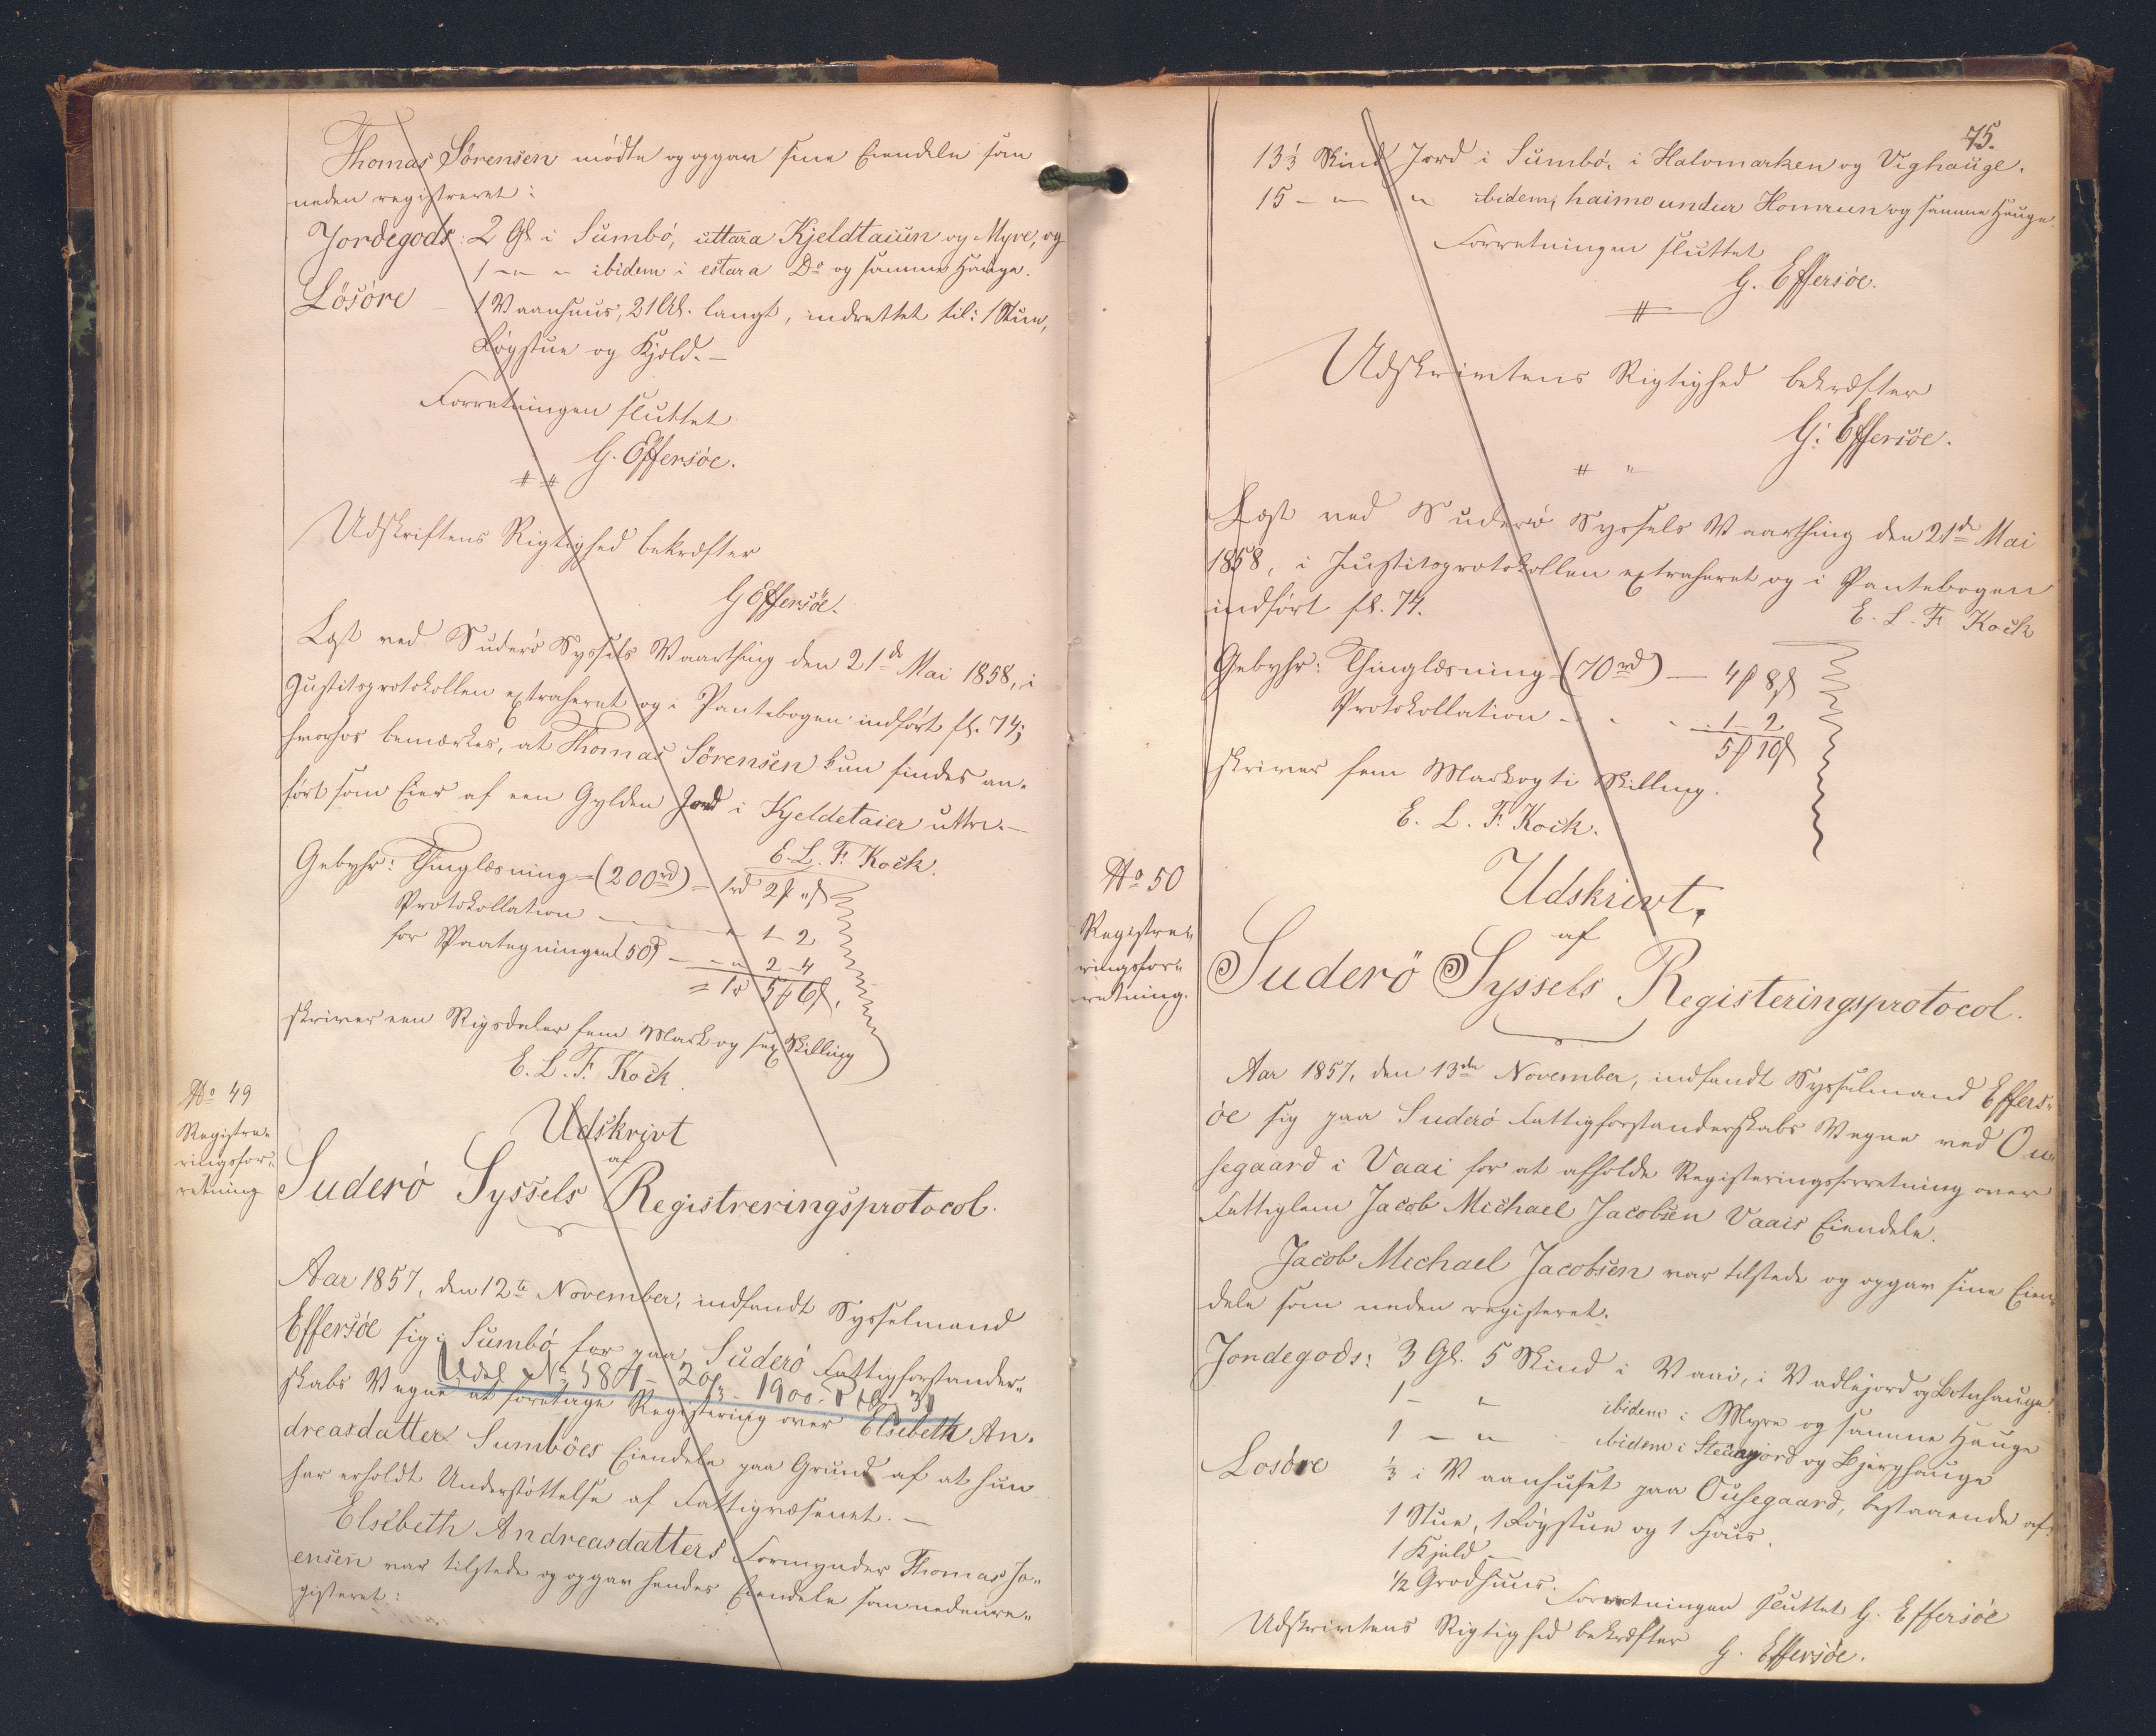 Thomas Sörensen mödte og opgav sine Eiendele som
neden registreret:
Jordegods: 2 Gl. i Sumbö, uttara Kjeldtaiun og Myre, og
1 – " – " ibidem i estara Do og samme Hauge.
Lösöre – 1 Vaanhuus, 21 Al. langt, indrettet til: 1 Stue,
Røgstue og Kjeld. –
Forretningen sluttet
G. Effersöe.
Udskriftens Rigtighed bekræfter
G Effersöe.
Læst ved Suderö Syssels Vaarthing den 21de Mai 1858, i
Justitsprotokollen extraheret og i Pantebogen indfört fol. 74;
hvorhos bemærkes, at Thomas Sörensen kun findes an-
fört som Eier af een Gylden Jord i Kjeldetaier uttre. –
E. L. F. Koch.
Gebyhr: Thinglæsning – (200rd) – 1rd 2 ß " ß
Protokollation – " 1 – 2
for Paategningen (50) – " 2 – 4
= 1rd 5 ß 6 ß.
skriver een Rigsdaler fem Mark og sex Skilling
E. L. F. Koch
No 49
Registre-
ringsfor-
retning
Udskrivt
af
Suderö Syssels Registreringsprotocol.
Aar 1857, den 12te November, indfandt Sysselmand
Effersöe sig i Sumbö for paa Suderö Fattigforstander-
skabs Vegne at foretage Registering over Elsebeth An-
Udsl. No 584 – 20/3 – 1900.
dreasdatter Sumböes Eiendele paa Grund af at hun
har erholdt Understöttelse af Fattigvæsenet. –
Elsebeth Andreasdatters Formynder Thomas Jo-
ensen var tilstede og opgav hendes Eiendele som neden re-
gisteret:
75.
13 1/3 Skind Jord i Sumbö, i Halvmarken og Vighauge.
15 – " " ibidem, haime undur Homrun og samme Hauge.
Forretningen sluttet
G. Effersöe.
Udskrivtens Rigtighed bekræfter
G. Effersöe.
Læst ved Suderö Syssels Vaarthing den 21de Mai
1858, i Justitsprotokollen extraheret og i Pantebogen
indfört fol. 74.
E. L. F. Koch
Gebyhr: Thinglæsning – (70rd) – 4 ß 8 ß
Protokollation – 1 – 2
5 ß 10 ß
skriver fem Mark og ti Skilling.
E. L. F. Koch.
No 50
Registre-
ringsfor-
retning.
Udskrivt,
af
Suderö Syssels Registeringsprotocol.
Aar 1857, den 13de November, indfandt Sysselmand Effers-
öe sig paa Suderö Fattigforstanderskabs Vegne ved Ou-
segaard i Vaai for at afholde Registeringsforretning over
Fattiglem Jacob Michael Jacobsen Vaais Eiendele.
Jacob Michael Jacobsen var tilstede og opgav sine Eien-
dele som neden registeret.
Jordegods: 3 Gl. 5 Skind i Vaai, i Vadlejord og Botnhauge.
1 – " ibidem i Myre og samme Hauge
1 – " – ibidem i Steuajord og Bjerghauge
Losöre 1/3 i Vaanhuset paa Ousegaard, bestaaende af:
1 Stue, 1 Røgstue og 1 Hous.
1 Kjeld –
1/2 Grodhuus.
Forretningen sluttet G. Effersöe
Udskrivtens Rigtighed bekræfter G. Effersöe.